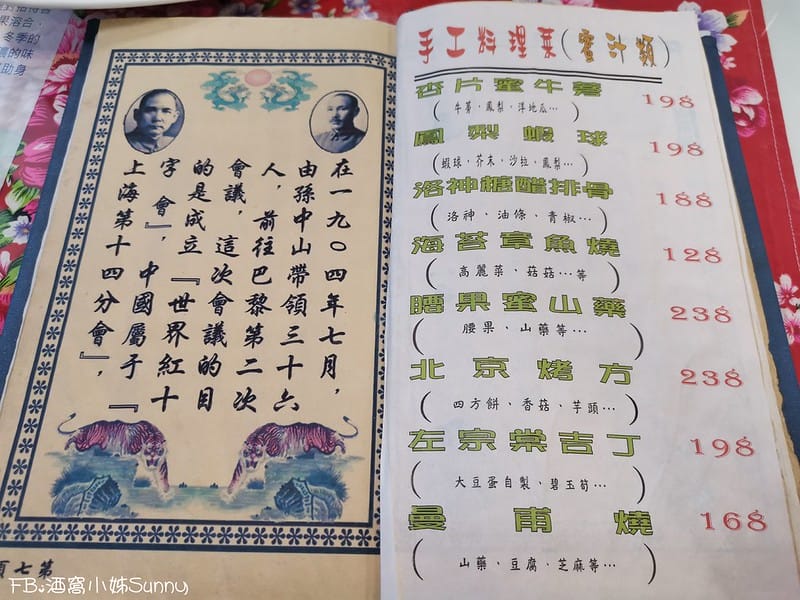 招待各
果溶合，
冬季的
濃的味
助身
在一九〇四年七月，
由孫中山帶領三十六
人，前往巴黎第二次
會議，這次會議的目
的是成立『世界紅十
字會』，中國屬于『
上海第十四分會』，
第七頁
手工料理菜(蜜汁類)
杏片蜜牛蒡 198
(牛蒡、鳳梨、洋地瓜…)
鳳梨蝦球 198
(蝦球、芥末、沙拉、鳳梨…)
洛神糖醋排骨 188
(洛神、油條、青椒…)
海苔章魚燒 128
(高麗菜、菇菇…等)
腰果蜜山藥 238
(腰果、山藥等…)
北京烤方 238
(四方餅、香菇、芋頭…)
左宗棠吉丁 198
(大豆蛋自製、碧玉筍…)
曼甫燒 168
(山藥、豆腐、芝麻等…)
FB:酒窩小姊Sunny